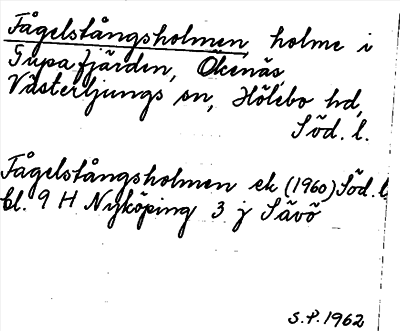 Fågelstångsholmen, holme i
Gupafjärden, Ökenäs,
Västerljungs sn, Hölebo hd,
Söd. l.
Fågelstångsholmen ek (1960) Söd. l
bl. 9 H Nyköping 3 j Sävö
S.P. 1962